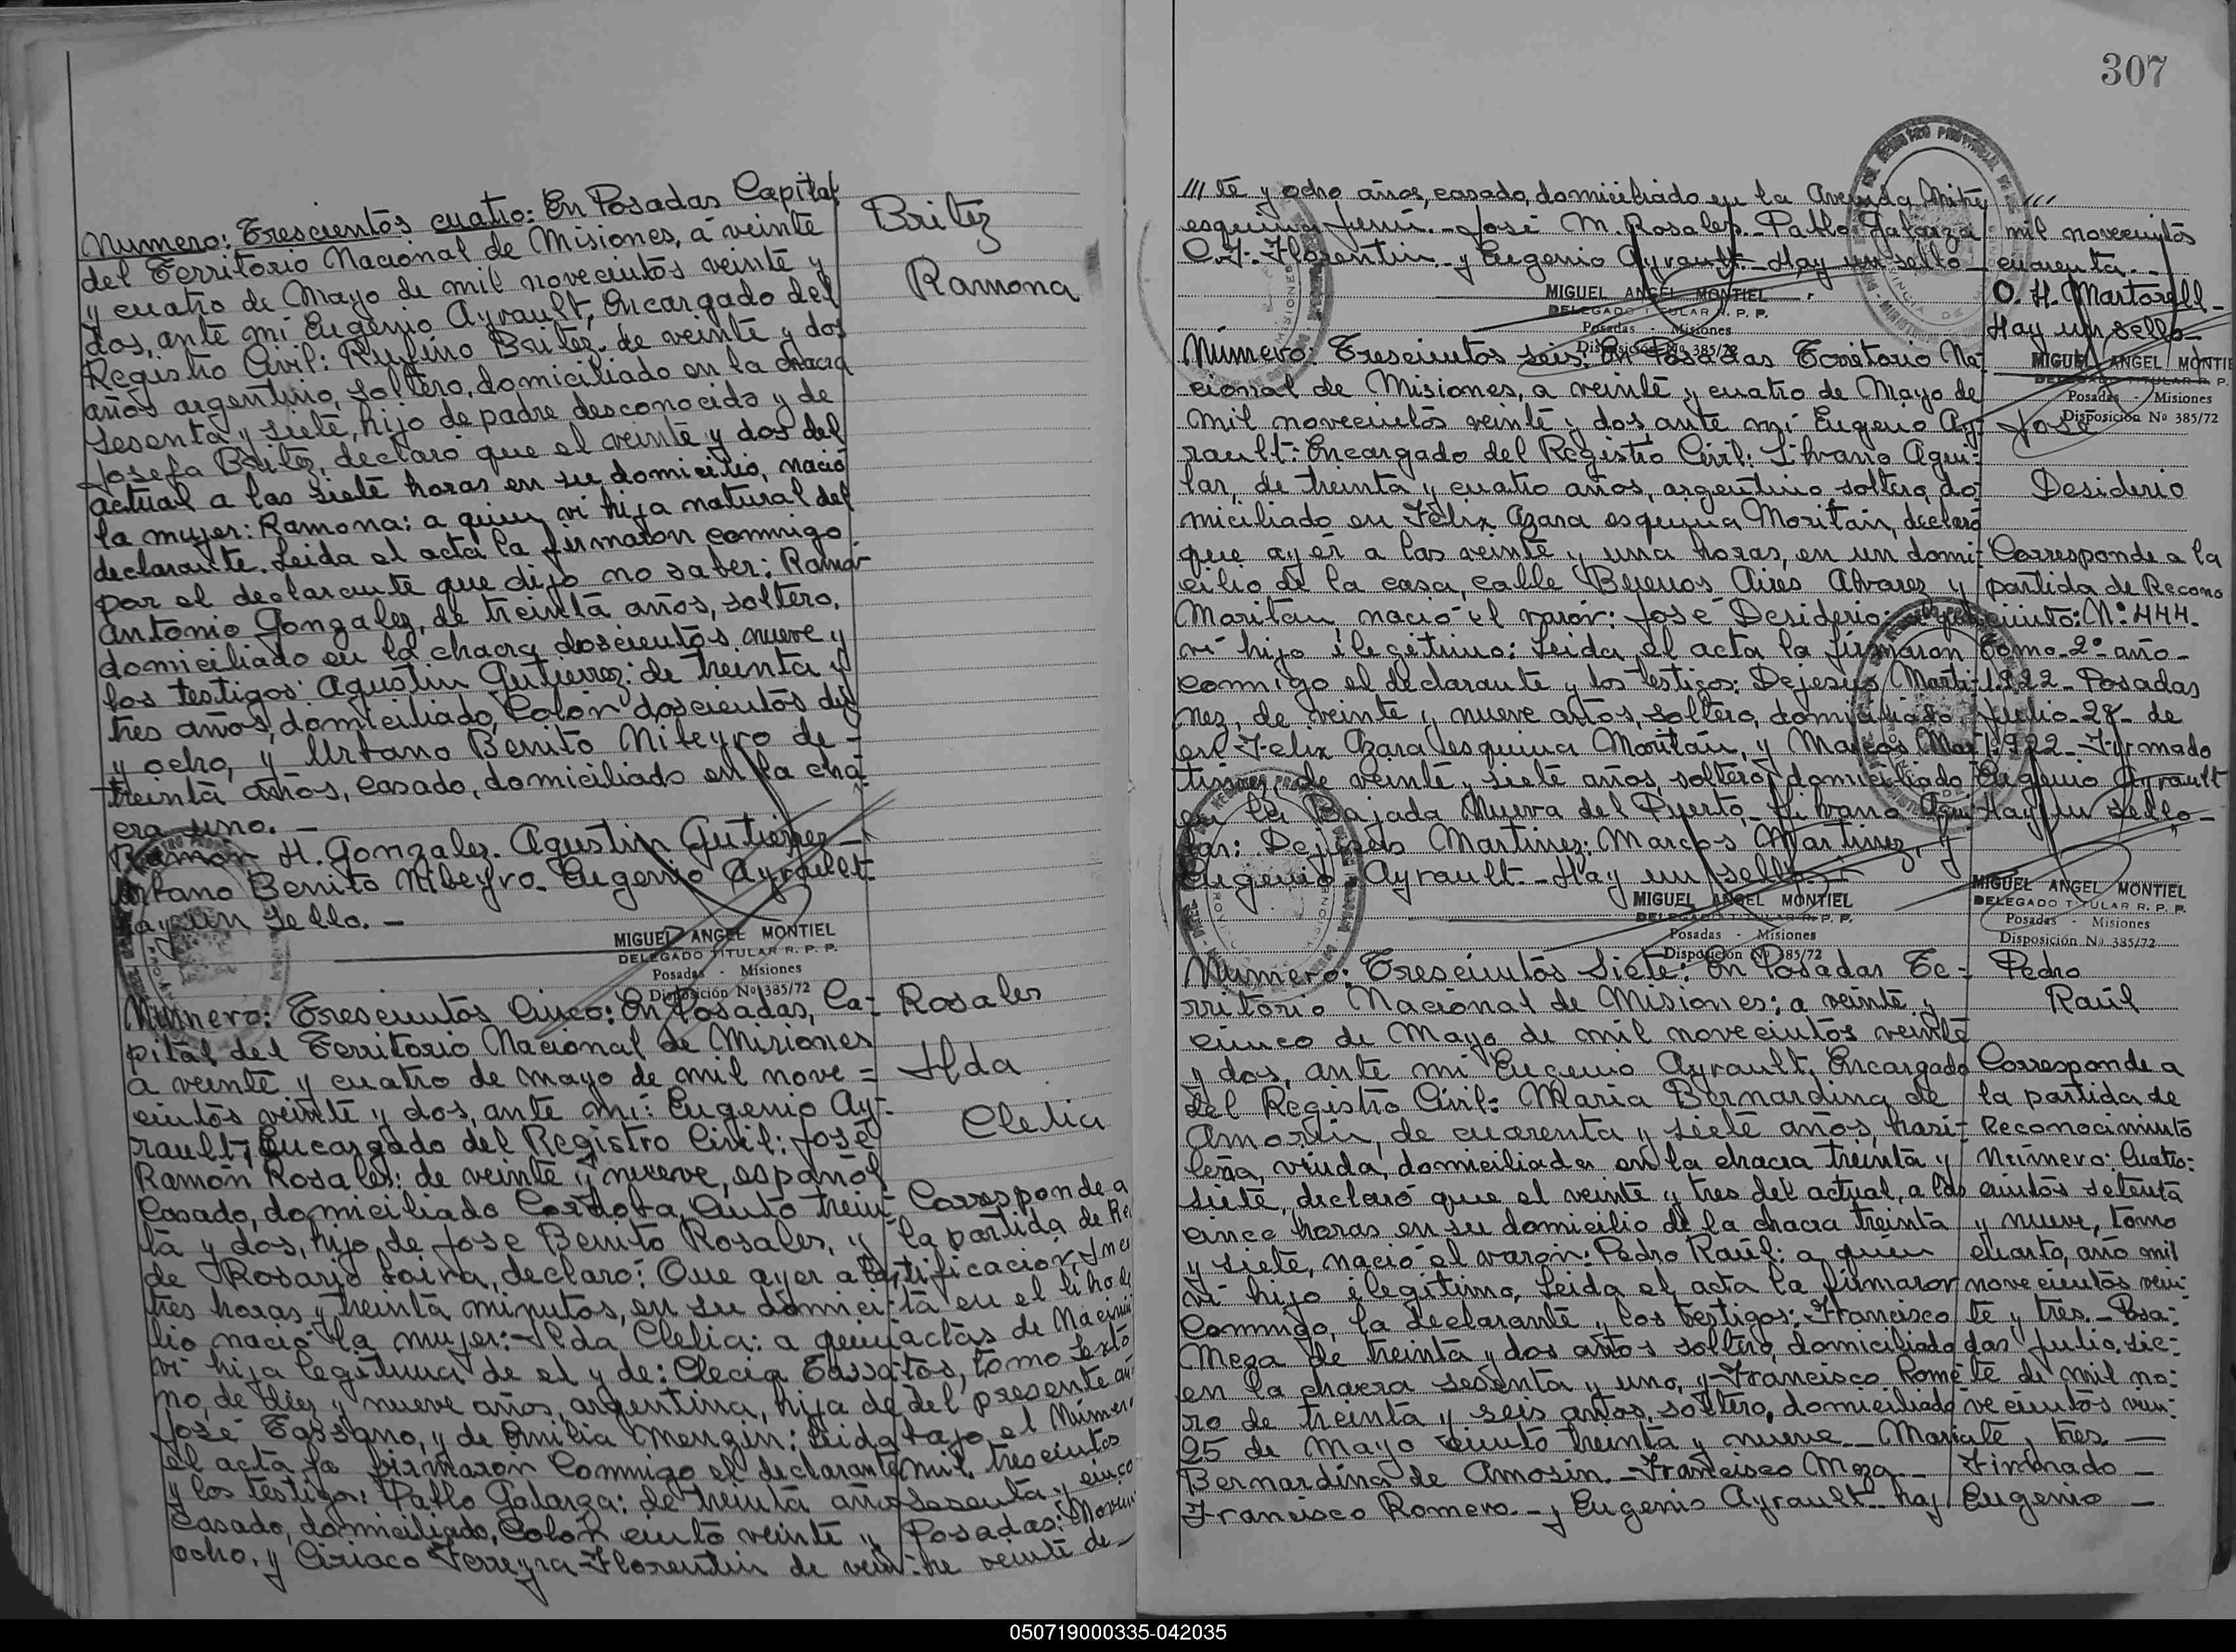 Numero: Trescientos cuatro: En Posadas Capital
del Territorio Nacional de Misiones, á veinte
y cuatro de Mayo de mil novecientos veinte y
dos, ante mi Eugenio Ayrault, Encargado del
Registro Civil: Rufino Britez de veinte y dos
años argentino, soltero, domiciliado en la chacra
Sesenta y siete, hijo de padre desconocido y de
Josefa Britez, declaró que el veinte y dos del
actual a las siete horas en su domicilio, nació
la mujer: Ramona: a quien vi hija natural del
declarante. Leida el acta la firmaron conmigo
por el declarante que dijo no saber: Ramón
Antonio Gonzalez, de treinta años, soltero,
domiciliado en la chacra doscientos nueve y
los testigos: Agustin Gutierrez: de treinta y
tres años, domiciliado, Colón doscientos diez
y ocho, y Urbano Benito Nibeyro de-
treinta años, casado, domiciliado en la cha-
cra uno. —
Ramón H. Gonzalez. Agustin Gutierrez —
Urbano Benito Nibeyro. Eugenio Ayrault-
Hay un sello. —
Britez
Ramona
MIGUEL ANGEL MONTIEL
DELEGADO TITULAR R. P. P.
Posadas - Misiones
Disposición Nº 385/72
Número: Trescientos Cinco: En Posadas, Ca-
pital del Territorio Nacional de Misiones
a veinte y cuatro de mayo de mil nove=
cientos veinte y dos, ante mi: Eugenio Ay-
rault, Encargado del Registro Civil: José
Ramón Rosales: de veinte y nueve, español
Casado, domiciliado Cordoba Ciento trein-
ta y dos, hijo de Jose Benito Rosales, y
de Rosario declaró: Que ayer a las
tres horas y treinta minutos, en su domici-
lio nació la mujer:- Ilda Clelia: a quien
vi hija legitima de el y de: Clecia Tassa-
no, de diez y nueve años, argentina, hija de
José Tassano, y de Emilia Mengin: Leida
el acta la firmaron Conmigo el declarante
y los testigos: Pablo Galarza: de treinta años
Casado, domiciliado, Colón ciento veinte y
ocho, y Ciriaco Ferreyra-Florentin de vein-
Rosales
Ilda
Clelia
Corresponde a
la partida de Re
tificación, Ins
ta en el libro de
actas de Nacimi
tos, tomo Sexto
del presente añ
bajo el Númer
mil trescientos
Sesenta y cinco
Posadas: Novie
bre veinte de —
307
/// te y ocho años, casado, domiciliado en la Avenida Mitre
esquina Junin.- José M. Rosales.- Pablo Galarza
C. F. Florentin.- y Eugenio Ayrault.- Hay un sello —
MIGUEL ANGEL MONTIEL
DELEGADO TITULAR R. P. P.
Posadas - Misiones
Disposición Nº 385/72
///
mil novecientos
cuarenta.-
O. H. Martorell-
Hay un sello-
MIGUEL ANGEL MONTIE
DELEGADO TITULAR R. P.
Posadas - Misiones
Disposición Nº 385/72
Número: Trescientos seis: En Posadas Territorio Na-
cional de Misiones, a veinte y cuatro de Mayo de
mil novecientos veinte y dos ante mi Eugenio Ay-
rault: Encargado del Registro Civil: Silvano Agui-
lar, de treinta y cuatro años, argentino, soltero, do-
miciliado en Félix Azara esquina Moritán, declaró
que ayer a las veinte y una horas, en un domi-
cilio de la casa, calle Buenos Aires Alvarez y
Moritan nació el varón: José Desiderio: a quien
vi hijo ilegitimo: Leida el acta la firmaron
conmigo el declarante y los testigos: Dejesús Marti-
nez, de veinte y nueve años, soltero, domiciliado
en Felix Azara esquina Moritán, y Marcos Mar-
tinez, de veinte y siete años, soltero, domiciliado
en la Bajada Nueva del Puerto,- Silvano Agui-
lar: Dejesús Martinez: Marcos Martinez, y
Eugenio Ayrault.- Hay un sello.-
José
Desiderio
Corresponde a la
partida de Recono
cimiento: Nº 444-
Tomo-2º año-
1922- Posadas
Julio-28- de
1922- Firmado
Eugenio Ayrault
Hay un sello-
MIGUEL ANGEL MONTIEL
DELEGADO TITULAR R. P. P.
Posadas - Misiones
Disposición Nº 385/72
MIGUEL ANGEL MONTIEL
DELEGADO TITULAR R. P. P.
Posadas - Misiones
Disposición Nº 385/72
Numero: Trescientos Siete: En Posadas Te-
rritorio Nacional de Misiones; a veinte y
cinco de Mayo de mil novecientos veinte
y dos, ante mi Eugenio Ayrault. Encargado
del Registro Civil: Maria Bernardina de
Amorin, de cuarenta y siete años, brasi-
leña, viuda, domiciliada en la chacra treinta y
siete, declaró que el veinte y tres del actual, a las
cinco horas en su domicilio de la chacra treinta
y siete, nació el varón: Pedro Raúl: a quien
vi hijo ilegitimo, Leida el acta la firmaron
Conmigo, la declarante y los testigos: Francisco
Meza de treinta y dos años soltero, domiciliado
en la chacra sesenta y uno, y Francisco Rome-
ro de treinta y seis años, soltero, domiciliado
25 de Mayo ciento treinta y nueve.- Maria
Bernardina de Amosin.- Francisco Meza.-
Francisco Romero.- y Eugenio Ayrault- hay
Pedro
Raúl
Corresponde a
la partida de
Reconocimiento
Número: Cuatro-
cientos setenta
y nueve, tomo
cuarto, año mil
novecientos vein-
te y tres.- Posa-
das Julio. sie-
te de mil no-
vecientos vein-
te y tres. —
Firmado —
Eugenio —
050719000335-042035